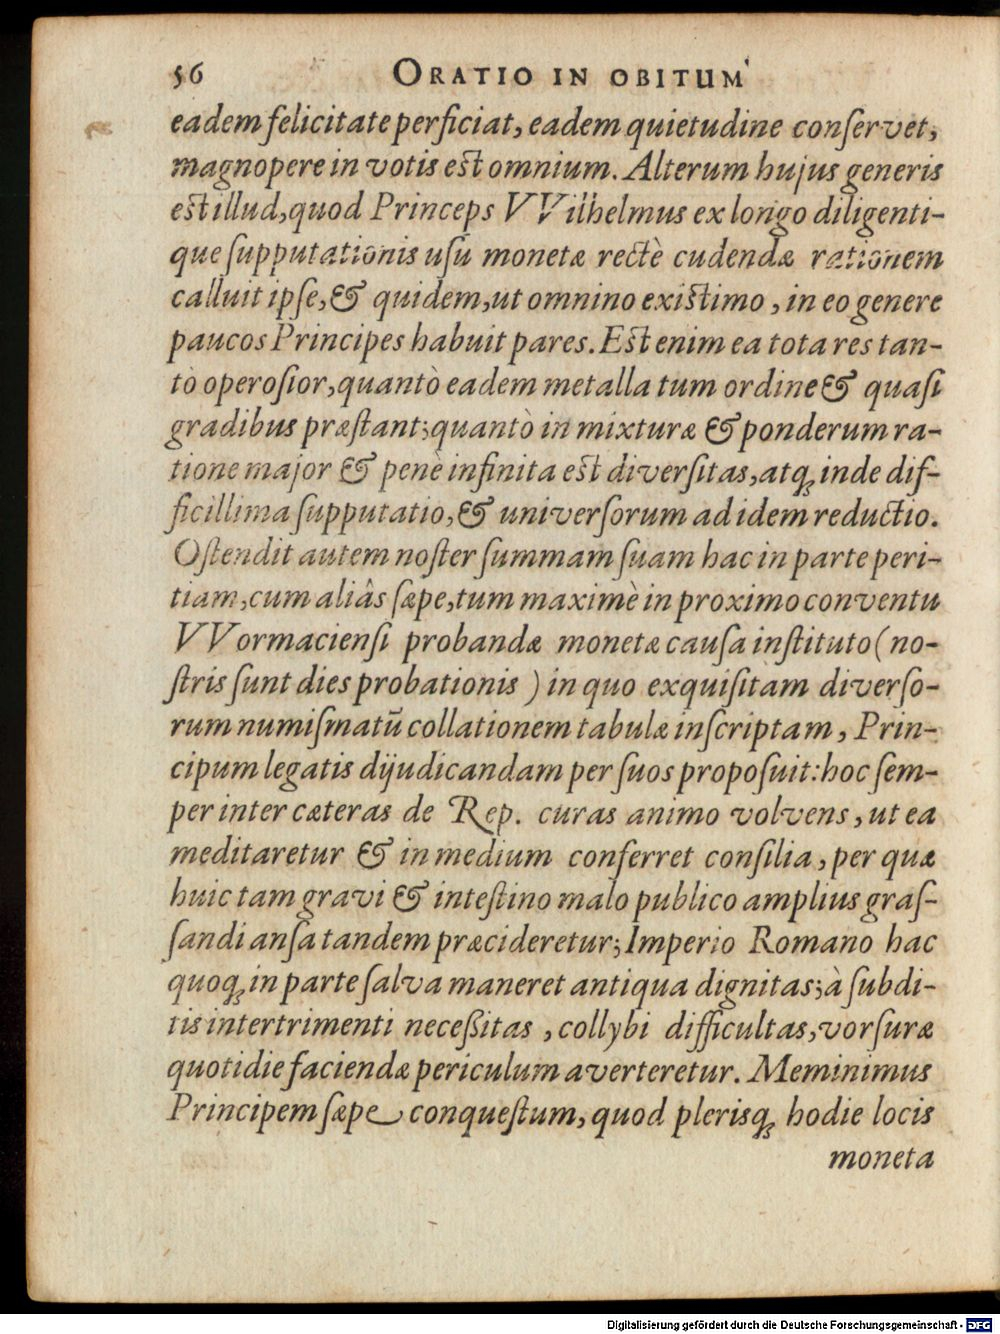 56 ORATIO IN OBITUM
eadem felicitate perficiat, eadem quietudine conſervet,
magnopere in votis eſt omnium. Alterum hujus generis
eſt illud, quod Princeps VVilhelmus ex longo diligenti-
que ſupputationis uſu monetæ rectè cudendæ rationem
calluit ipſe, & quidem, ut omnino exiſtimo, in eo genere
paucos Principes habuit pares. Eſt enim ea tota res tan-
tò operoſior, quantò eadem metalla tum ordine & quaſi
gradibus præſtant; quantò in mixturæ & ponderum ra-
tione major & penè infinita eſt diverſitas, atq; inde dif-
ficillima ſupputatio, & univerſorum ad idem reductio.
Oſtendit autem noſter ſummam ſuam hac in parte peri-
tiam, cum aliâs ſæpe, tum maximè in proximo conventu
VVormacienſi probandæ monetæ cauſa inſtituto (no-
ſtris ſunt dies probationis ) in quo exquiſitam diverſo-
rum numiſmatũ collationem tabulæ inſcriptam, Prin-
cipum legatis dijudicandam per ſuos propoſuit: hoc ſem-
per inter cæteras de Rep. curas animo volvens, ut ea
meditaretur & in medium conferret conſilia, per quæ
huic tam gravi & inteſtino malo publico amplius graſ-
ſandi anſa tandem præcideretur; Imperio Romano hac
quoq; in parte ſalva maneret antiqua dignitas; à ſubdi-
tis intertrimenti neceßitas, collybi difficultas, vorſuræ
quotidie faciendæ periculum averteretur. Meminimus
Principem ſæpe conqueſtum, quod pleriſq; hodie locis
moneta
Digitalisierung gefördert durch die Deutsche Forschungsgemeinschaft - DFG